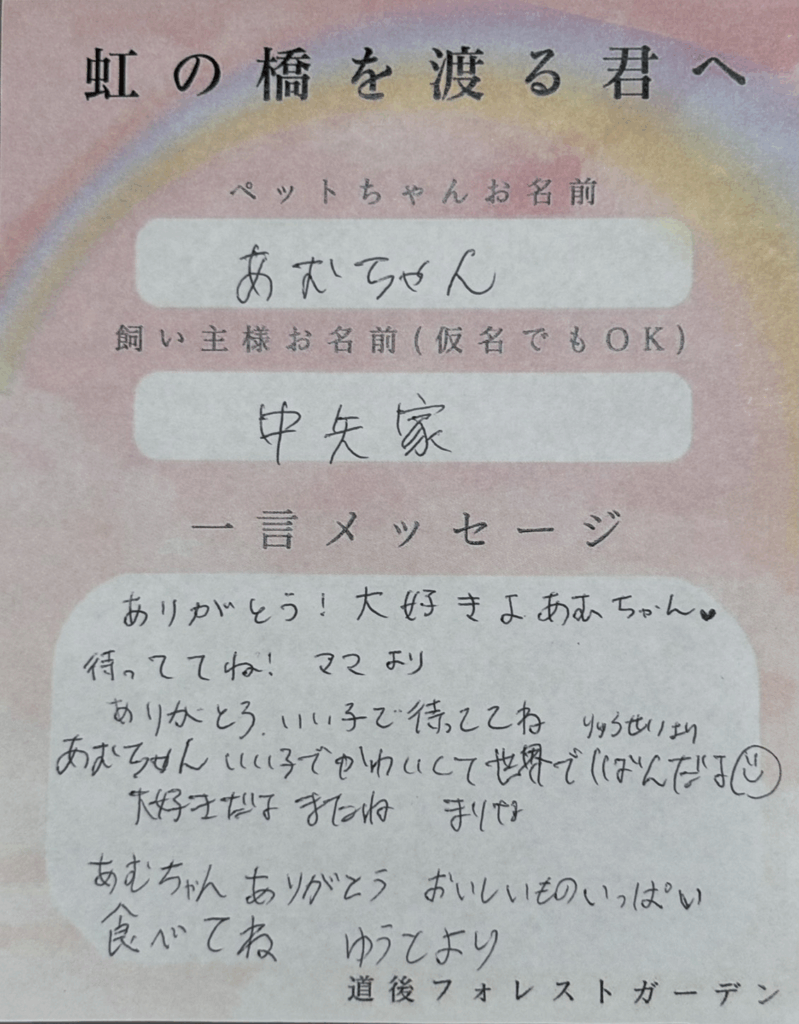 虹の橋を渡る君へ
ペットちゃんお名前
あむちゃん
飼い主様お名前(仮名でもOK)
中矢家
一言メッセージ
ありがとう！大好きよあむちゃん♥
待っててね！ ママより
ありがとう、いい子で待っててね りゅうせいより
あむちゃんいい子でかわいくて世界で1ばんだよ☺
大好きだよ またね まりな
あむちゃん ありがとう おいしいものいっぱい
食べてね ゆうとより
道後フォレストガーデン